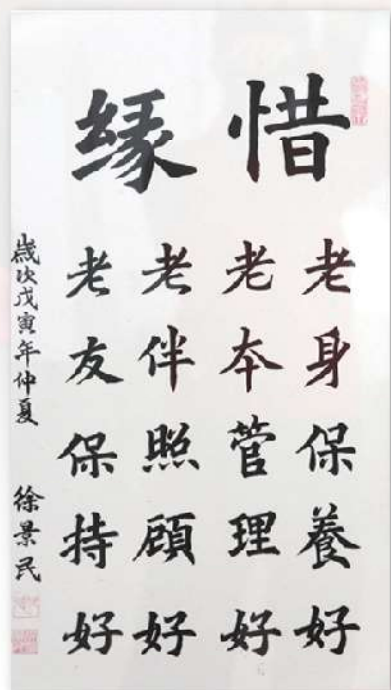 惜緣
老身保養好
老本管理好
老伴照顧好
老友保持好
歲次戊寅年仲夏 徐景民